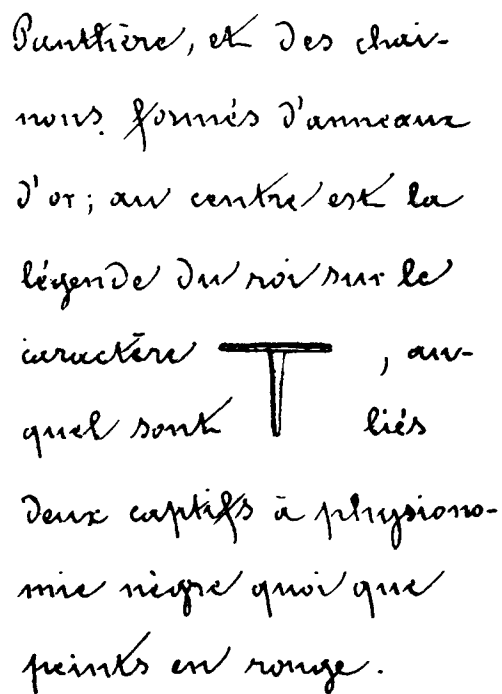 Panthère, et des chaî-
nons formés d'anneaux
d'or; au centre est la
légende du roi sur le
caractère , au-
quel sont liés
deux captifs à physiono-
mie nègre quoi que
peints en rouge.